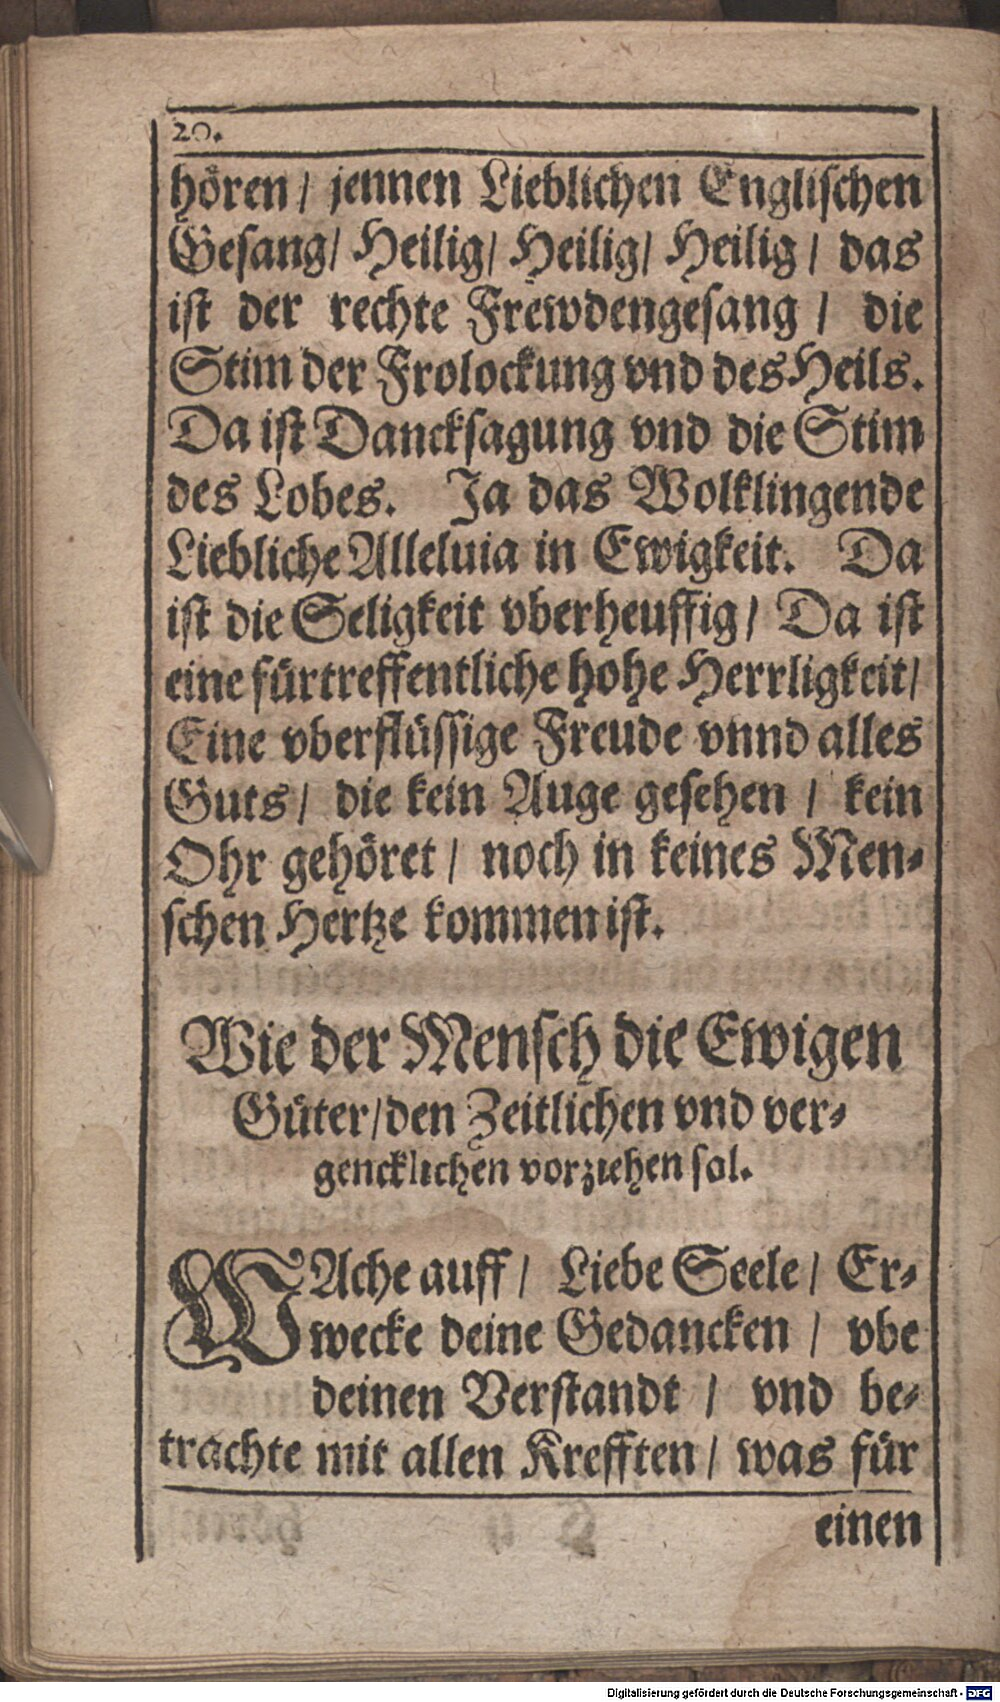 20.
hören / jennen Lieblichen Englischen
Gesang/ Heilig/ Heilig/ Heilig / das
ist der rechte Frewdengesang / die
Stim der Frolockung vnd des Heils.
Da ist Dancksagung vnd die Stim
des Lobes. Ja das Wolklingende
Liebliche Alleluia in Ewigkeit. Da
ist die Seligkeit vberheuffig / Da ist
eine fürtreffentliche hohe Herrligkeit/
Eine vberflüssige Freude vnnd alles
Guts / die kein Auge gesehen / kein
Ohr gehöret / noch in keines Men-
schen Hertze kommen ist.
Wie der Mensch die Ewigen
Güter/den Zeitlichen vnd ver-
gencklichen vorziehen sol.
WAche auff / Liebe Seele / Er-
wecke deine Gedancken / vbe
deinen Verstandt / vnd be-
trachte mit allen Krefften / was für
einen
Digitalisierung gefördert durch die Deutsche Forschungsgemeinschaft - DFG